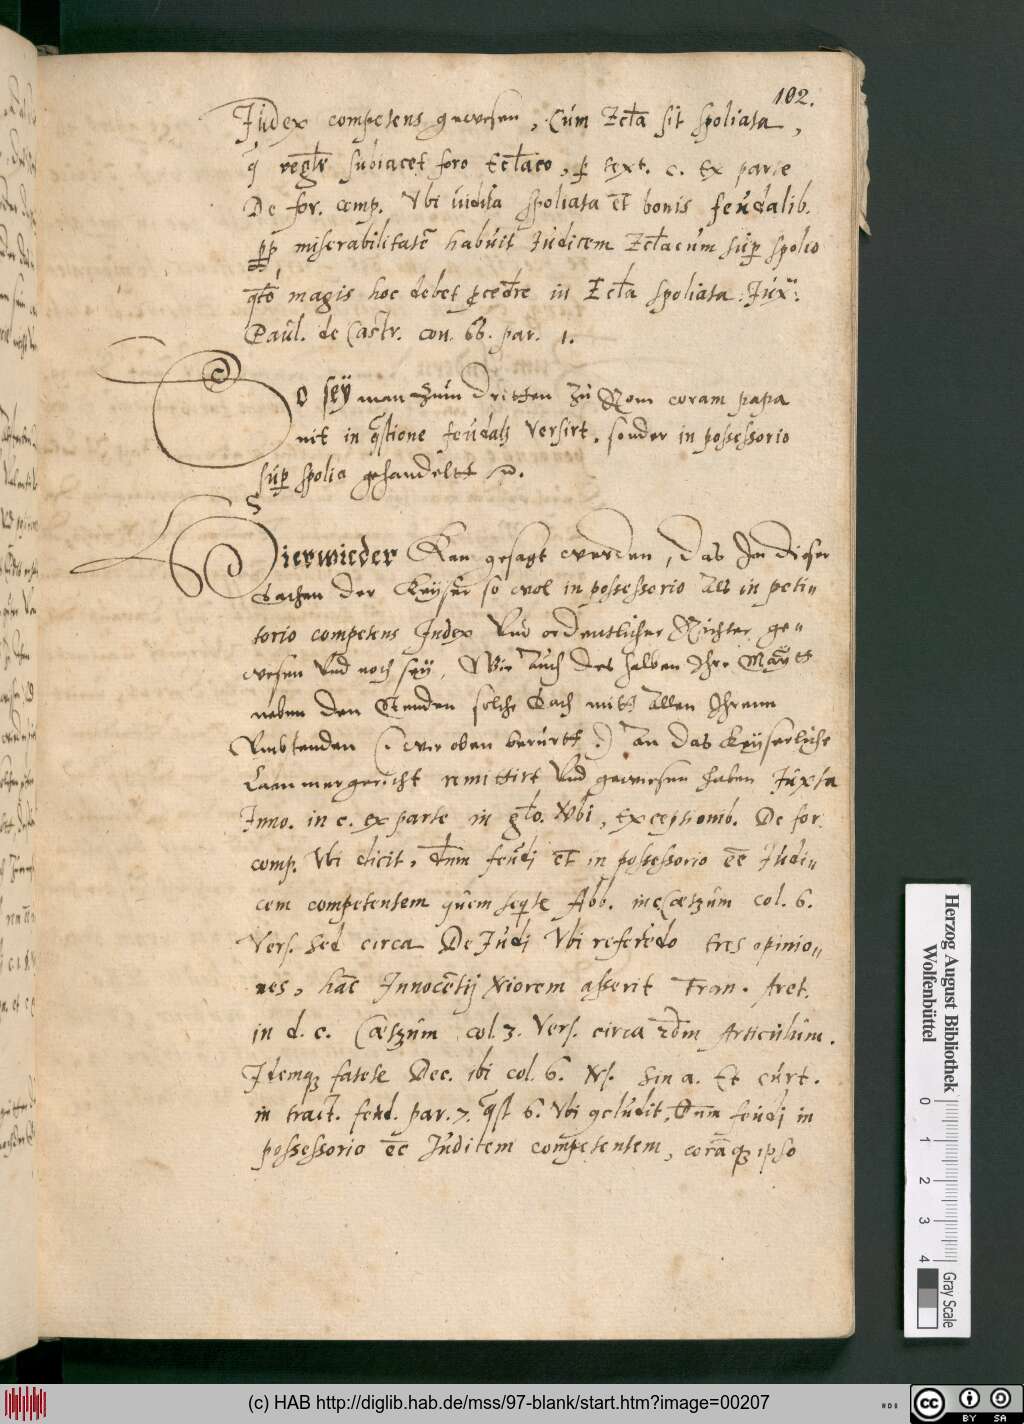 102.
Judex competens gewesen, Cum Eccl̅a sit spoliata,
q̇ regl̅r subiacet foro Eccl̅aco, ꝑ text. c. ex parte
De for. comp. Ubi vidua spoliata et̅ bonis feudalib.
ꝓp miserabilitatē habuit Judicem Eccl̅acum suꝑ spolio
qto magis hoc debet ꝓced̅re in Eccl̅a spoliata. Jux:
Paul. de Castr. con. 66. par. 1.
So seÿ man zum Dritten zu Rom coram papa
nit in q̅stione feudalj versirt, sonder in possessorio
suꝑ spolia gehandeltt ꝛc.
Hierwieder Kan gesagt werden, das In dieser
Sachen der Keÿser so wol in possessorio als in peti"
torio competens Judex Und ordentlicher Richter ge"
wesen Und noch seÿ, Wie auch deshalben Ihre Maÿtt
neben den Stenden solche Sach mitt allen Ihrenn
Umbstenden (: wie oben berürtt :) an das Keÿserliche
Cammergericht remittirt Und gewiesen haben Juxta
Inno. in c. ex parte in glo. Ubi, exceptionib. De for.
comp. Ubi dicit, Dn̅m feudi et̅ in possessorio ee̅ Judi"
cem competentem quem seqte Abb. in c. Cæterum col. 6.
Vers. Sed circa De Judi Ubi referēdo tres opinio"
nes, hāc Innocētij asserit Fran. Aret.
in d. c. Cæterum col. 3. Vers. circa 2dm Articulum.
Idemqꝫ Dec. ibi col. 6. Sin a. Et curt.
in tract. feud. par. 7. q̅st 6. Ubi Dn̅m feudi in
possessorio ee̅ Judicem competentem, corāqꝫ ipso
Herzog August Bibliothek
Wolfenbüttel
0 1 2 3 4
Gray Scale
(c) HAB http://diglib.hab.de/mss/97-blank/start.htm?image=00207
cc BY SA